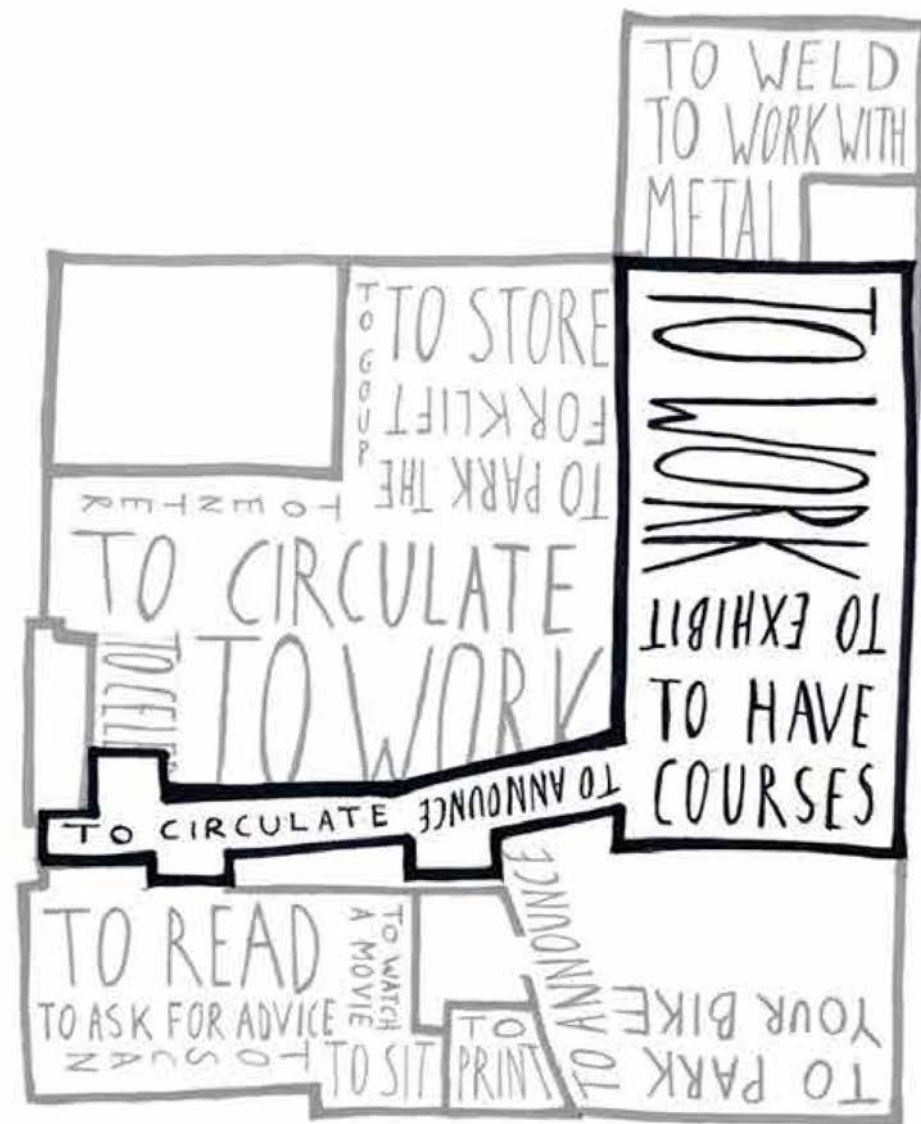 TO WELD
TO WORK WITH
METAL
TO GO UP
TO STORE
TO PARK THE
FORKLIFT
TO ENTER
TO CIRCULATE
TO WORK
TO WORK
TO EXHIBIT
TO HAVE
COURSES
TO CIRCULATE
TO ANNOUNCE
TO ANNOUNCE
TO READ
TO ASK FOR ADVICE
TO SCAN
TO WATCH
A MOVIE
TO SIT
TO
PRINT
TO PARK
YOUR BIKE